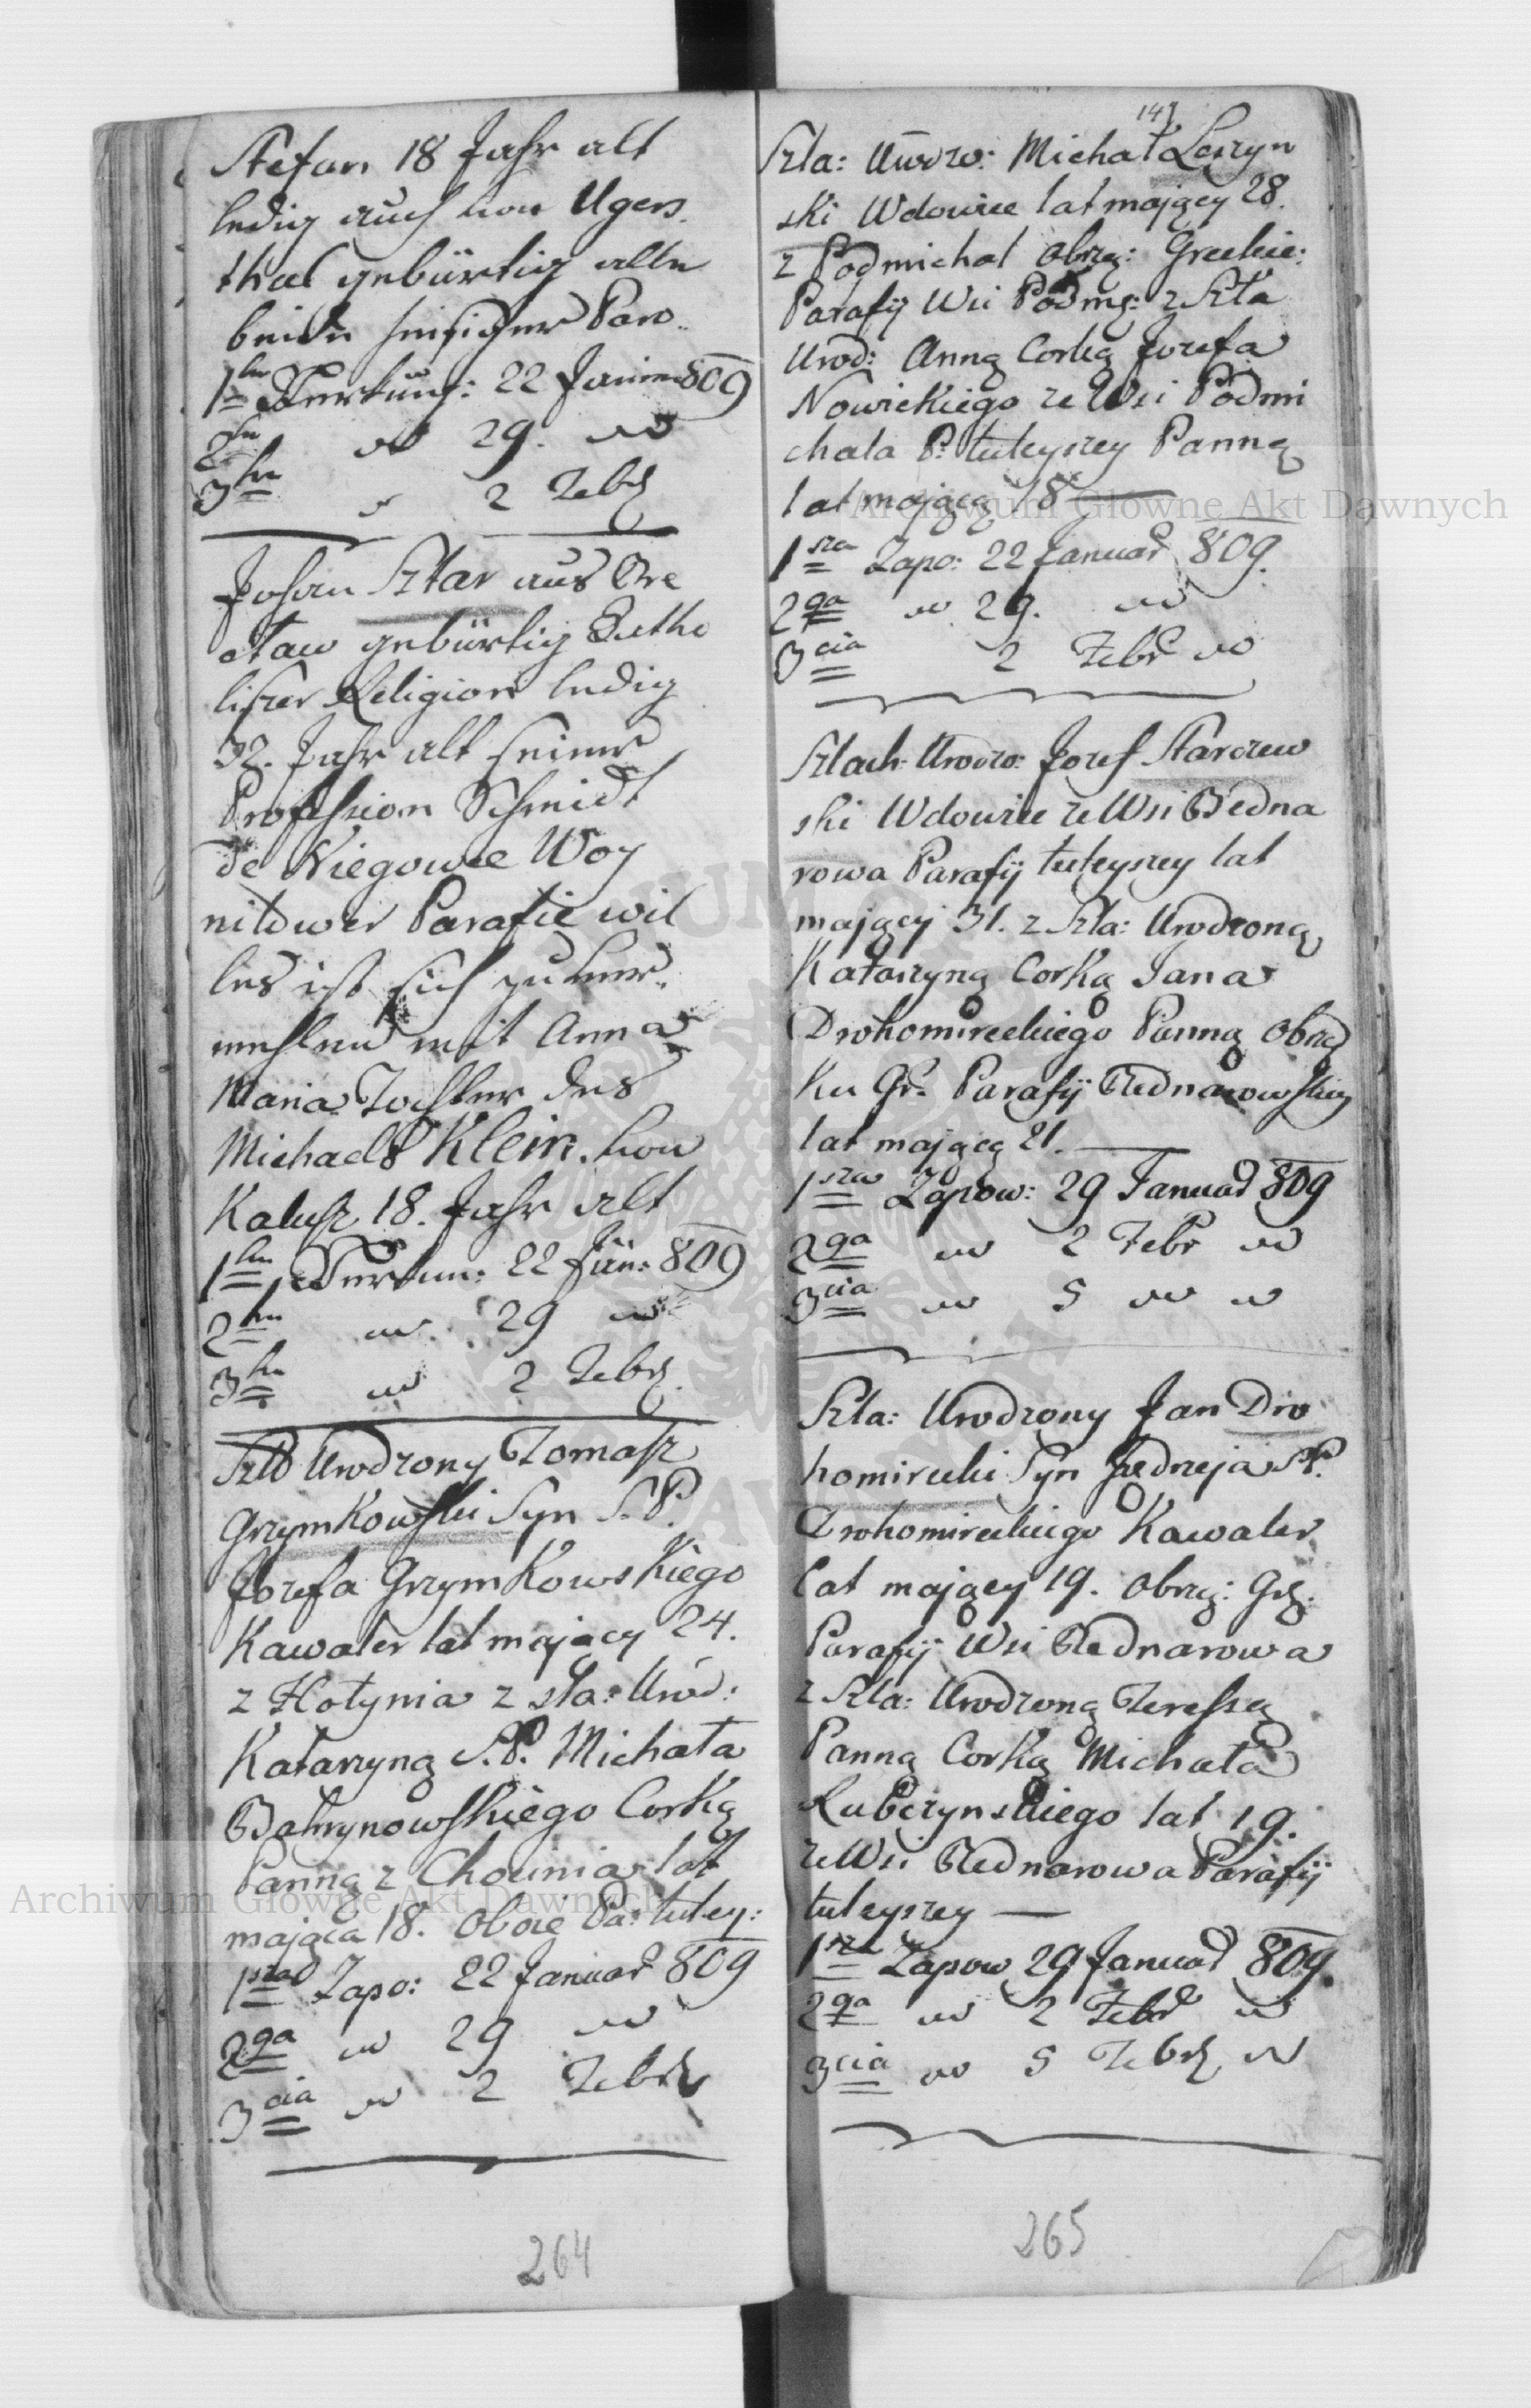 Stefan 18 Jahr alt
ledig auch von Ugers
thal gebürtig alle
beide hiesiger Paro.
1te Verkünd: 22 Januar 809
2te " 29. "
3te " 2 Febr
Johan Sztar aus Bre
staw gebürtig Luthe
lischer Religion ledig
32. Jahr alt seiner
Profession Schmidt
de Niegowce Woy
nilower Parafie wil
les ist sich zu ver
mehlen mit Anna
Maria Tochter des
Michaels Klein. von
Kalusz 18. Jahr alt
1te Verkün: 22 Jän: 809
2te " 29 "
3te " 2 Febr
Szla Urodzony Tomasz
Grzymkowski Syn S.P.
Jozefa Grzymkowskiego
Kawaler lat mający 24.
z Hołynia z sła: Urod:
Katarzyną S.P. Michała
Bahrynowskiego Corką
Panną z Chocinia lat
mającą 18. oboie Pa: tutey:
1sza Zapo: 22 Januar 809
2ga " 29 "
3cia " 2 Febr
264
149
Szla: Urodzo: Michał Leszyn
ski Wdowiec lat mający 28.
z Podmichal obrzą: Greckie:
Parafij Wsi Podmi: z Szla
Urod: Anną Corką Jozefa
Nowickiego ze Wsi Podmi
chala P: tuteyszey Panną
lat mającą 18
1sza Zapo: 22 Januar 809.
2ga " 29. "
3cia 2 Febr "
Szlach: Urodzo: Jozef Starczew
ski Wdowiec ze Wsi Bedna
rowa Parafij tuteyszey lat
mający 31. z Szla: Urodzoną
Katarzyną Corką Jana
Drohomireckiego Panną obrząd
ku Gr: Parafij Bednarowskiey
lat mającą 21.
1sza Zapow: 29 Januar 809
2ga " 2 Febr "
3cia " 5 " "
Szla: Urodzony Jan Dro
homirecki Syn Jędrzeja S.P.
Drohomireckiego Kawaler
lat mający 19. obrzą: Gr:
Parafij Wsi Bednarowa
z Szla: Urodzoną Teresszą
Panną Corką Michała
Rubczynskiego lat 19.
ze Wsi Bednarowa Parafij
tuteyszey
1sza Zapow 29 Januar 809.
2ga " 2 Febr "
3cia " 5 Febr "
265
Archiwum Główne Akt Dawnych
Archiwum Główne Akt Dawnych